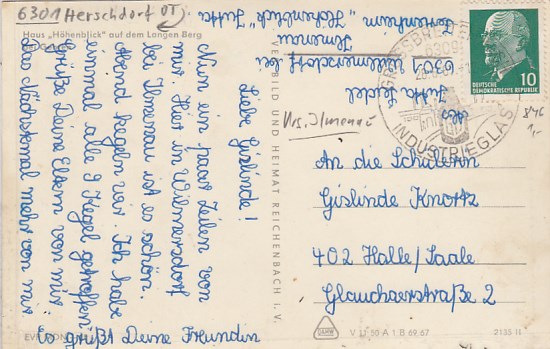 6301 Herschdorf OT
Haus „Höhenblick“ auf dem Langen Berg
Liebe Gislinde!
Nun ein paar Zeilen von
mir. Hier in Wilmersdorf
bei Ilmenau ist es schön.
Abend kegeln wir. Ich habe
einmal alle 9 Kegel getroffen.
Grüße Deine Eltern von mir
Das Nächstemal mehr von mir
Es grüßt Deine Freundin
Jutta
Abs.
Jutta Seidel
6301 Wilmersdorf bei
Ilmenau
Ferienheim „Höhenblick“
Krs. Ilmenau
VERLAG BILD UND HEIMAT REICHENBACH I. V.
INDUSTRIEGLAS
10
DEUTSCHE
DEMOKRATISCHE REPUBLIK
846
1,-
An die Schülerin
Gislinde Knortz
402 Halle/Saale
Glauchaerstraße 2
V 11 50 A 1 B 69 67
2135 II